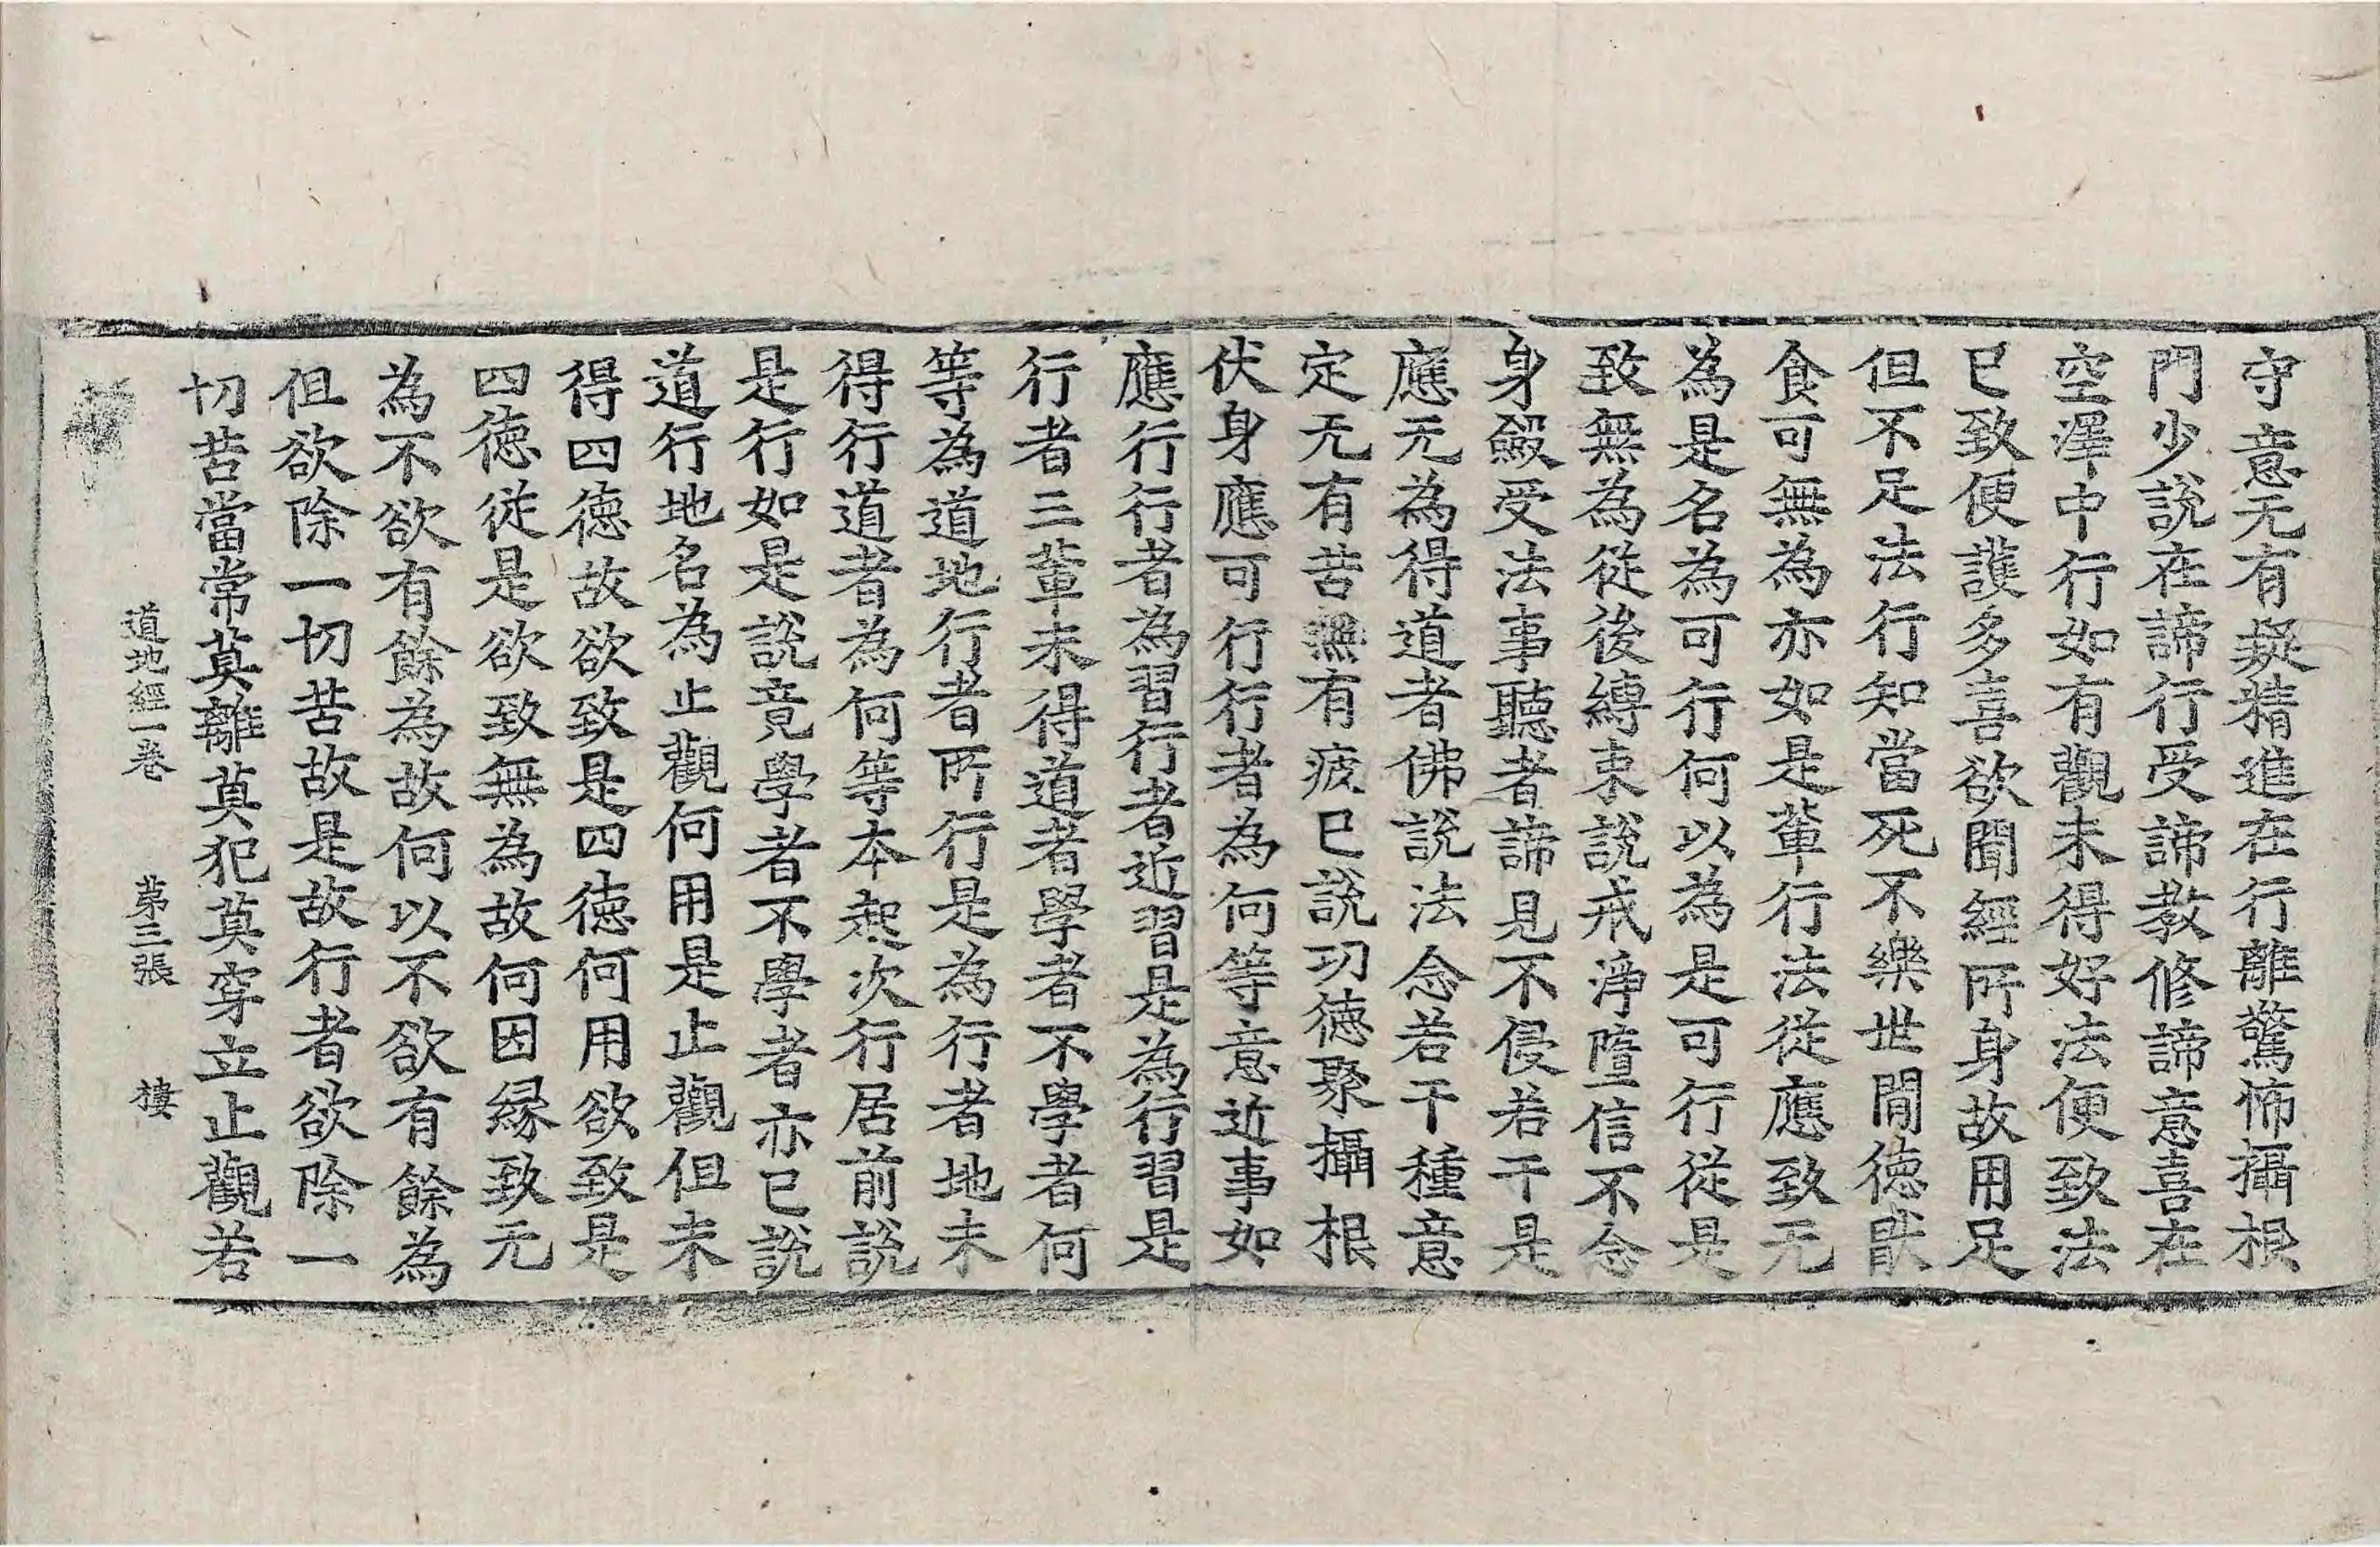 守意无有癡精進在行離驚怖攝根
門少說在諦行受諦教修諦意喜在
空澤中行如有觀未得好法便致法
已致便護多喜欲聞經所身故用足
但不足法行知當死不樂世間德猒
食可無為亦如是輩行法從應致无
為是名為可行何以為是可行從是
致無為從後縛束說戒淨墮信不念
身毀受法事聽者諦見不侵若干是
應无為得道者佛說法念若干種意
定无有苦無有疲已說功德聚攝根
伏身應可行行者為何等意近事如
應行行者為習行者近習是為行習是
行者三輩未得道者學者不學者何
等為道地行者所行是為行者地未
得行道者為何等本起次行居前說
是行如是說竟學者不學者亦已說
道行地名為止觀何用是止觀但未
得四德故欲致是四德何用欲致是
四德從是欲致無為故何因緣致无
為不欲有餘為故何以不欲有餘為
但欲除一切苦故是故行者欲除一
切苦當常莫離莫犯莫穿立止觀若
道地經一卷　第三張　樓